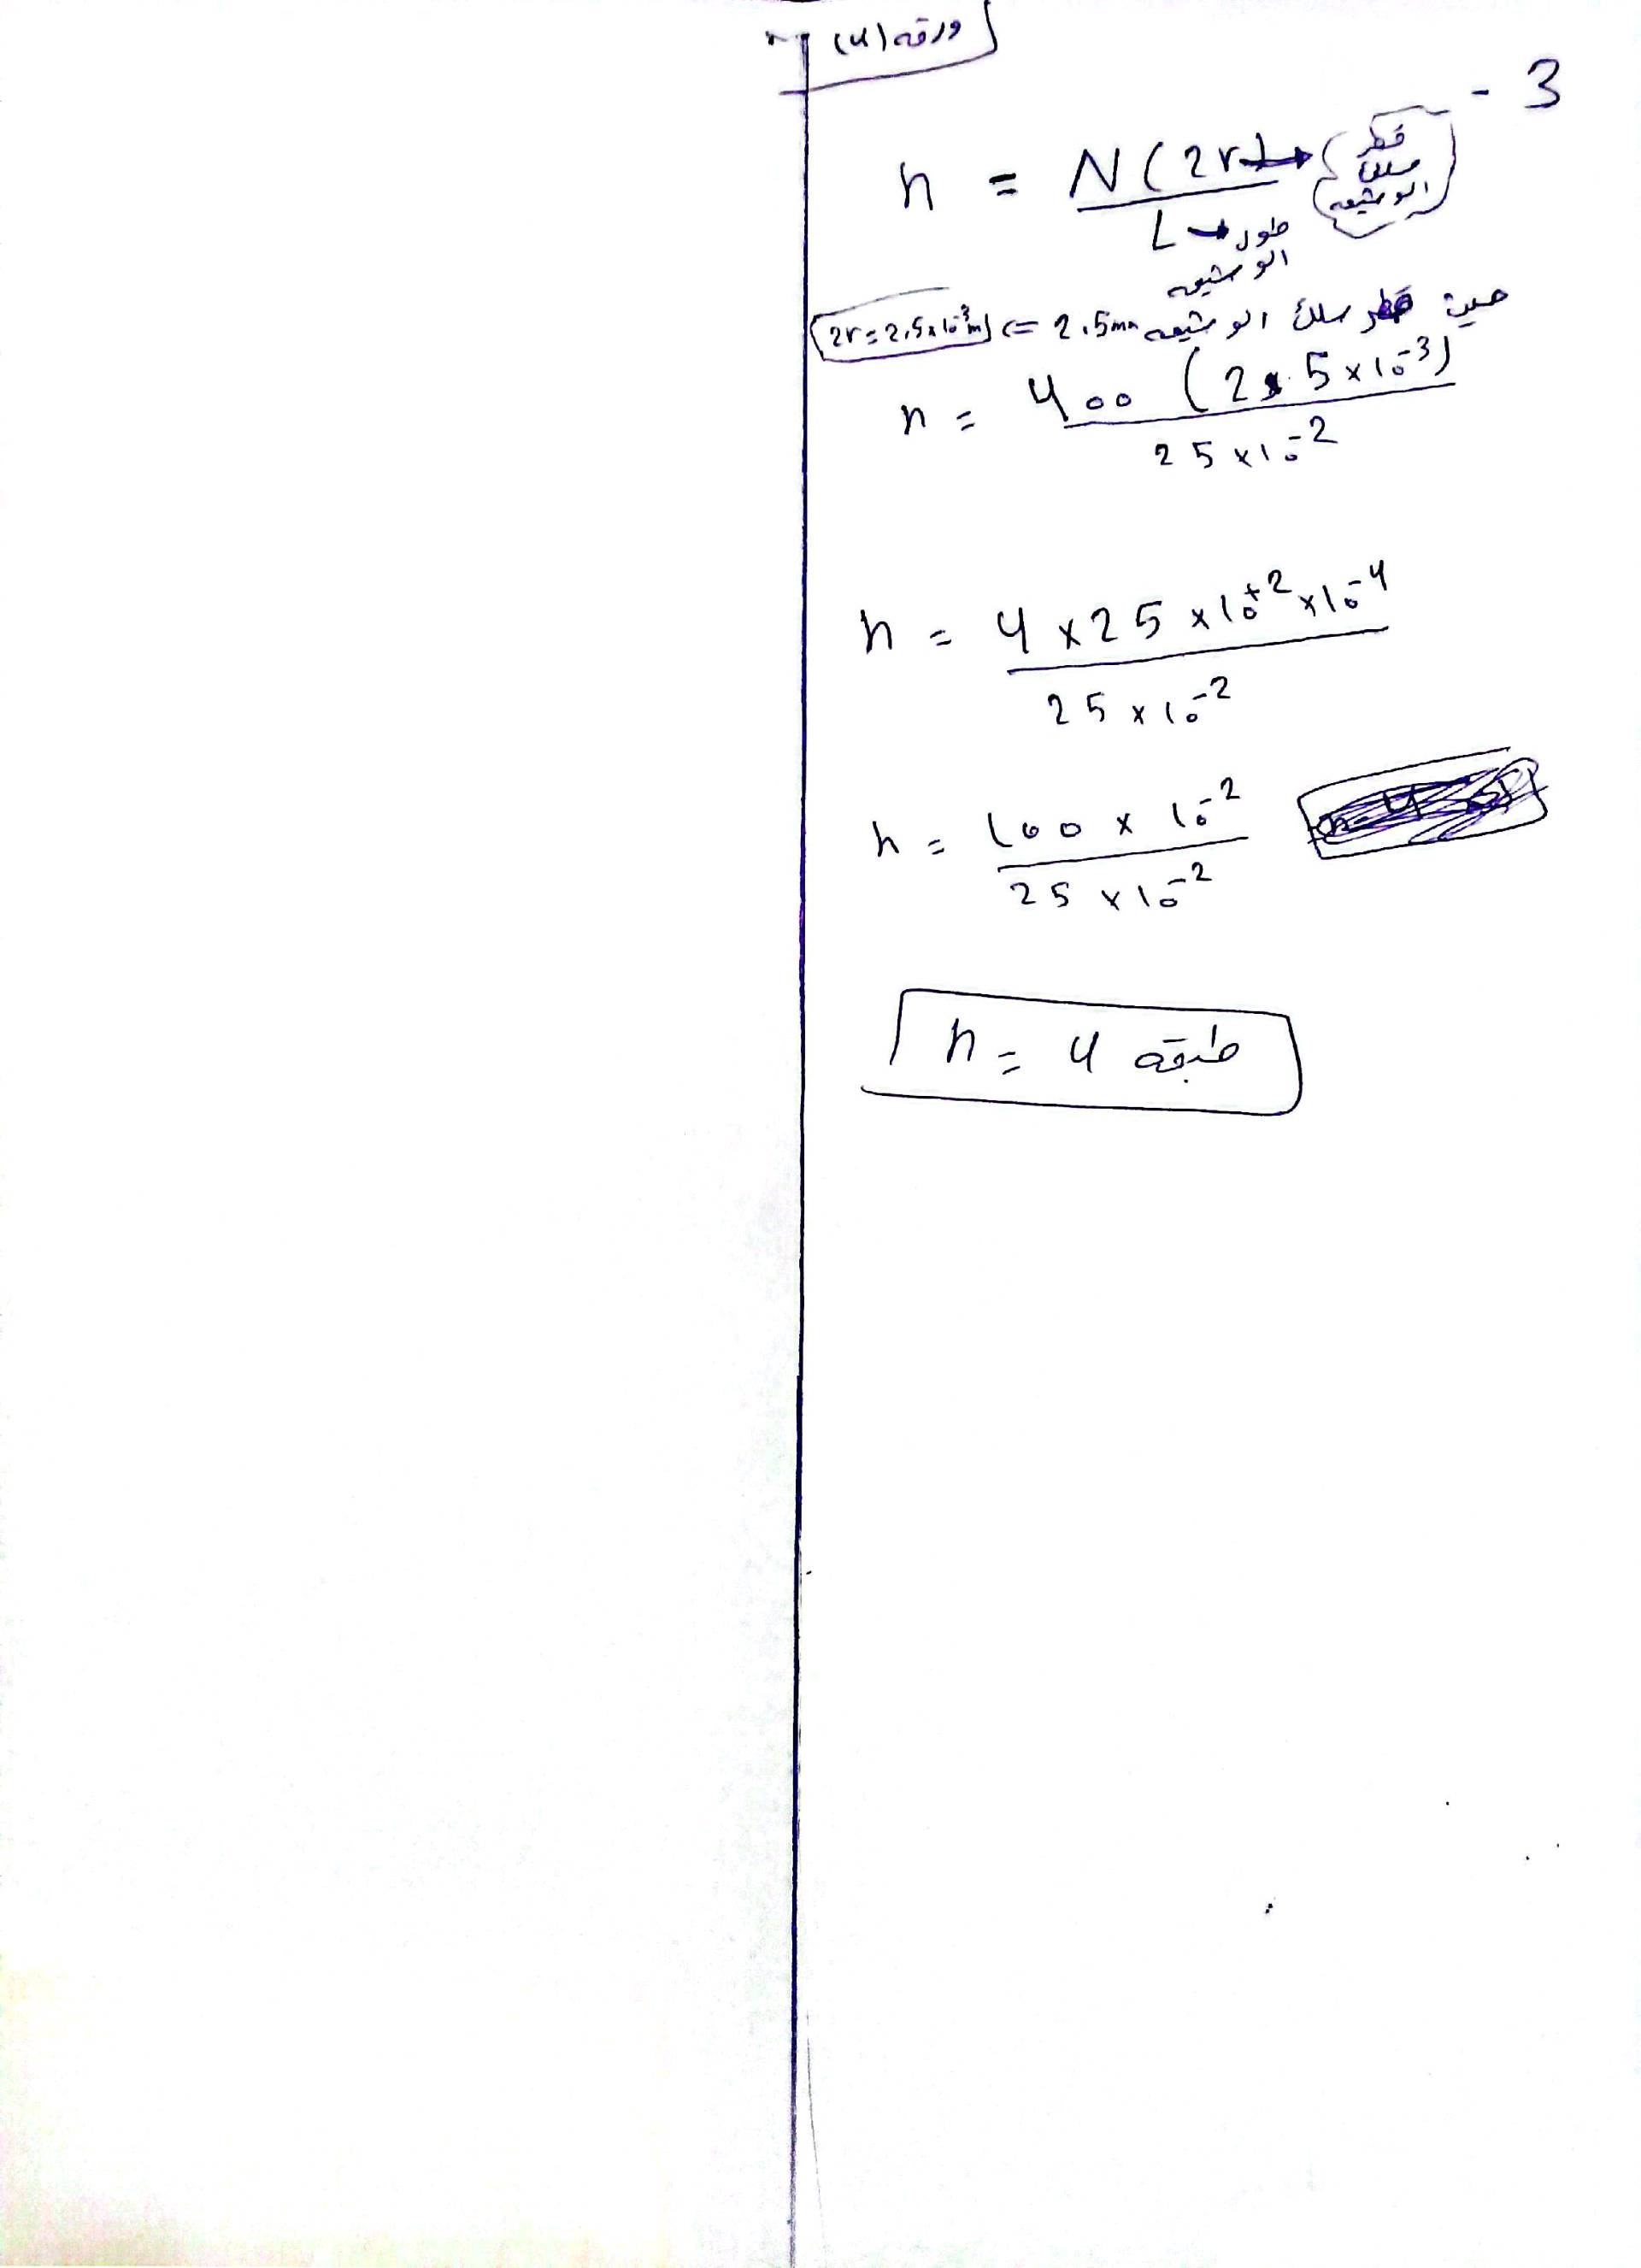 ورقه (4)
3 -
n = N(2r) → قطر سلك الوشيعه
L → طول الوشيعه
حيث قطر سلك الوشيعه 2.5mm => 2r = 2.5x10^-3 m
n = 400 (2.5 x 10^-3)
25 x 10^-2
n = 4 x 25 x 10^+2 x 10^-4
25 x 10^-2
n = 100 x 10^-2
25 x 10^-2
n = 4 طبقه